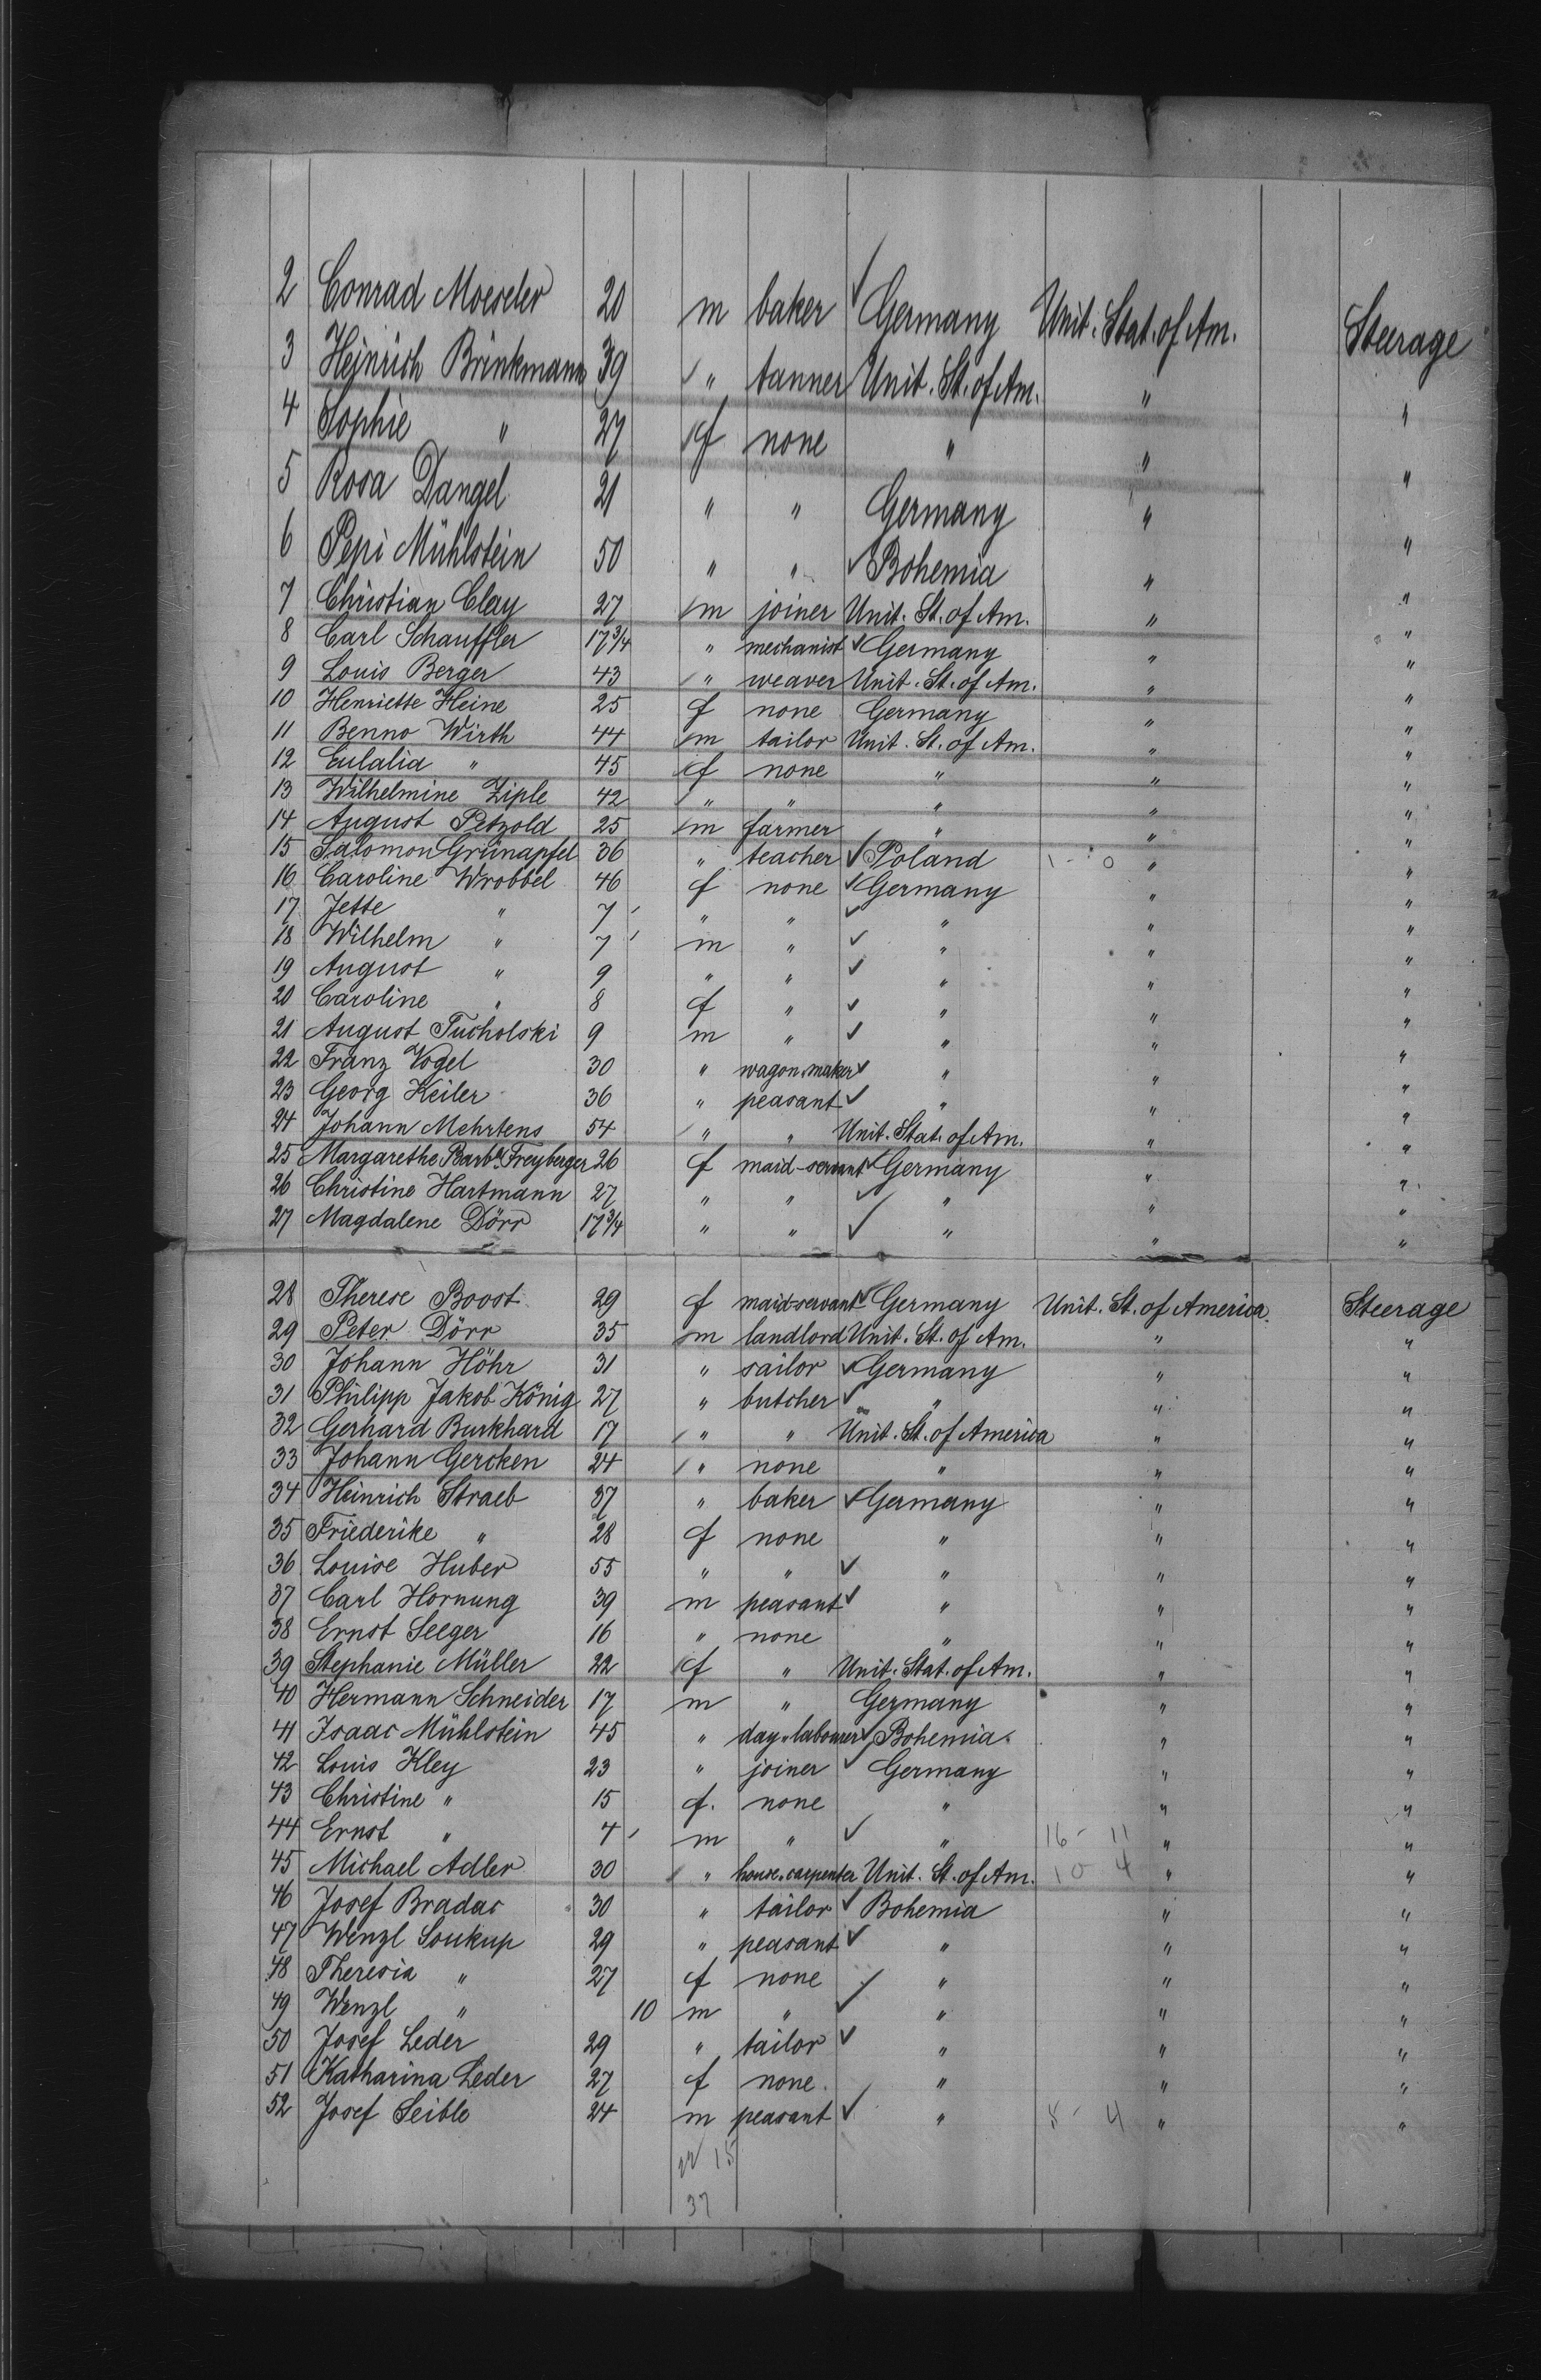 2 Conrad Moeseler 20 m baker ✓ Germany Unit. Stat. of Am. Steerage
3 Heinrich Brinkmann 39 ✓ " tanner Unit. St. of Am. " "
4 Sophie " 27 ✓ f none " " "
5 Rosa Dangel 21 " " Germany " "
6 Pepi Mühlstein 50 " " ✓ Bohemia " "
7 Christian Clay 27 m joiner Unit. St. of Am. " "
8 Carl Schauffler 17 3/4 " mechanist ✓ Germany " "
9 Louis Berger 43 " weaver Unit. St. of Am. " "
10 Henriette Heine 25 f none Germany " "
11 Benno Wirth 44 m tailor Unit. St. of Am. " "
12 Eulalia " 45 f none " " "
13 Wilhelmine Ziple 42 " " " " "
14 August Petzold 25 m farmer " " "
15 Salomon Grünapfel 36 " teacher ✓ Poland 1 - 0 " "
16 Caroline Wrobbel 46 f none ✓ Germany " "
17 Jette " 7 " " ✓ " " "
18 Wilhelm " 7 m " ✓ " " "
19 August " 9 " " ✓ " " "
20 Caroline " 8 f " ✓ " " "
21 August Tucholski 9 m " ✓ " " "
22 Franz Vogel 30 " wagon-maker ✓ " " "
23 Georg Keiler 36 " peasant ✓ " " "
24 Johann Mehrtens 54 " " Unit. Stat. of Am. " "
25 Margarethe Barb. Freyberger 26 f maid-servant ✓ Germany " "
26 Christine Hartmann 27 " " ✓ " " "
27 Magdalene Dörr 17 3/4 " " ✓ " " "
28 Therese Boost 29 f maid-servant ✓ Germany Unit. St. of America. Steerage
29 Peter Dörr 35 m landlord Unit. St. of Am. " "
30 Johann Höhr 31 " sailor ✓ Germany " "
31 Philipp Jakob König 27 " butcher ✓ " " "
32 Gerhard Burkhard 17 " " Unit. St. of America " "
33 Johann Gercken 24 " none " " "
34 Heinrich Straeb 37 " baker ✓ Germany " "
35 Friederike " 28 f none " " "
36 Louise Huber 55 " " ✓ " " "
37 Carl Hornung 39 m peasant ✓ " " "
38 Ernst Seeger 16 " none " " "
39 Stephanie Müller 22 f " Unit. Stat. of Am. " "
40 Hermann Schneider 17 m " Germany " "
41 Isaac Mühlstein 45 " day-labourer ✓ Bohemia " "
42 Louis Kley 23 " joiner ✓ Germany " "
43 Christine " 15 f. none " " "
44 Ernst " 4 m " ✓ " 16 - 11 " "
45 Michael Adler 30 " house-carpenter Unit. St. of Am. 10 4 " "
46 Josef Bradac 30 " tailor ✓ Bohemia " "
47 Wenzl Soukup 29 " peasant ✓ " " "
48 Theresia " 27 f none ✓ " " "
49 Wenzl " 10 m " ✓ " " "
50 Josef Leder 29 " tailor ✓ " " "
51 Katharina Leder 27 f none " " "
52 Josef Seible 24 m peasant ✓ " 8 - 4 " "
22 15
37